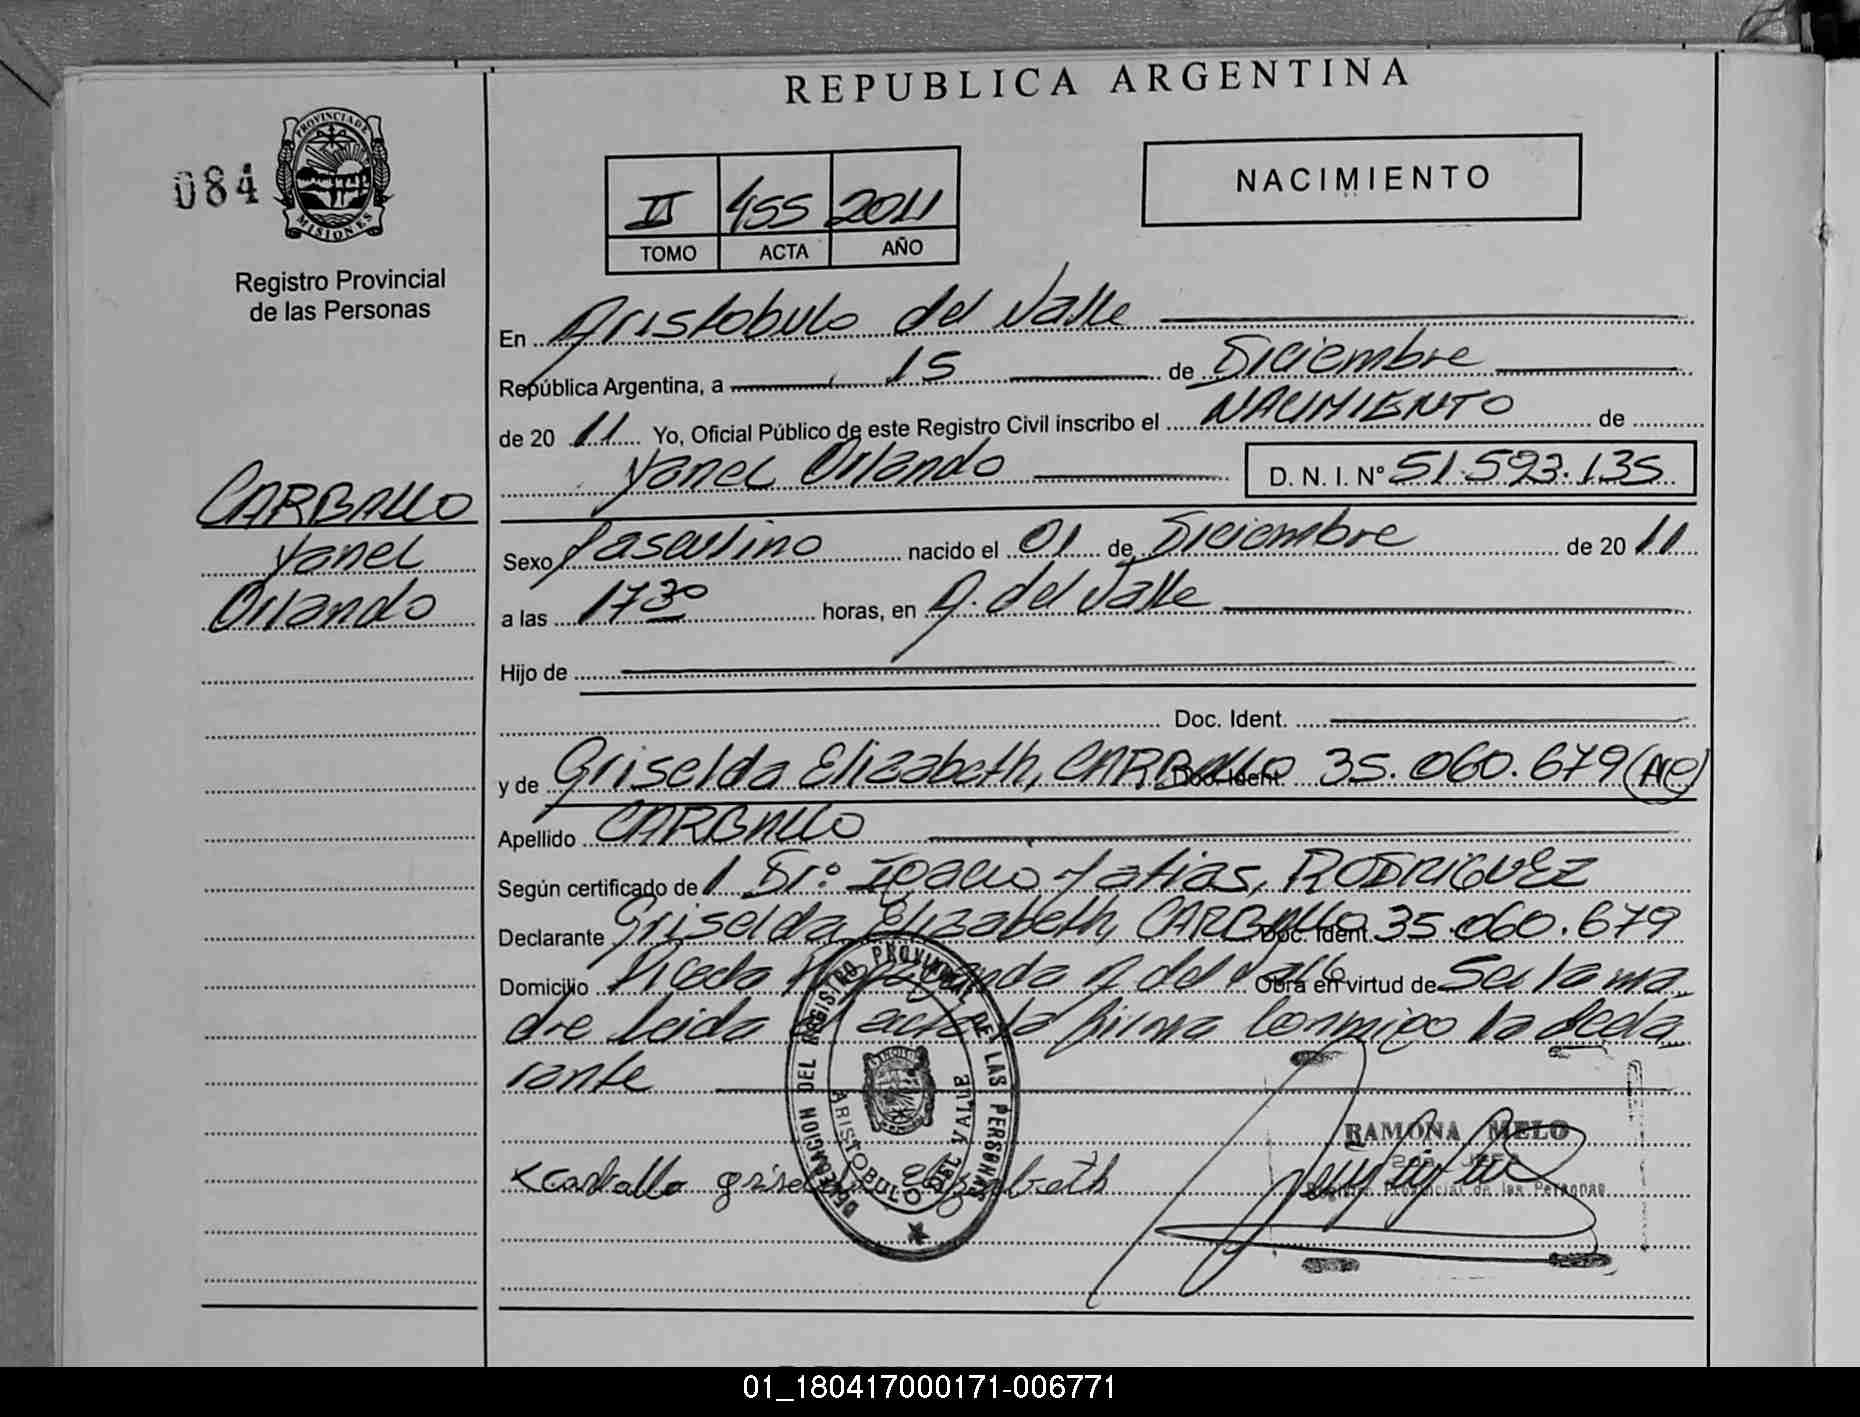 REPUBLICA ARGENTINA
084
PROVINCIA DE MISIONES
Registro Provincial
de las Personas
II 455 2011
TOMO ACTA AÑO
NACIMIENTO
En Aristobulo del Valle
República Argentina, a 15 de Diciembre
de 2011 Yo, Oficial Público de este Registro Civil inscribo el NACIMIENTO de
Yanel Orlando D. N. I. Nº 51.593.135
CARBALLO
Yanel
Orlando
Sexo Masculino nacido el 01 de Diciembre de 2011
a las 1730 horas, en A. del Valle
Hijo de
Doc. Ident.
y de Griselda Elizabeth, CARBALLO Doc. Ident. 35.060.679
Apellido CARBALLO
Según certificado de Dr: Matias, RODRIGUEZ
Declarante Griselda Elizabeth, CARBALLO Doc. Ident. 35.060.679
Domicilio A del Valle Obra en virtud de Ser la ma
dre leida el acta la firma conmigo la decla
rante
DELEGACION DEL REGISTRO PROVINCIAL DE LAS PERSONAS
ARISTOBULO DEL VALLE
RAMONA MELO
Registro Provincial de las Personas
x Carballo griselda elizabeth
01_180417000171-006771